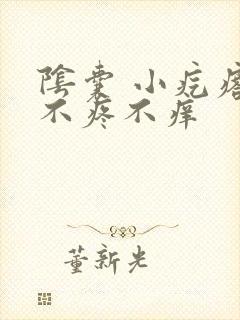 陰囊 小疙瘩
不疼不痒
董新光